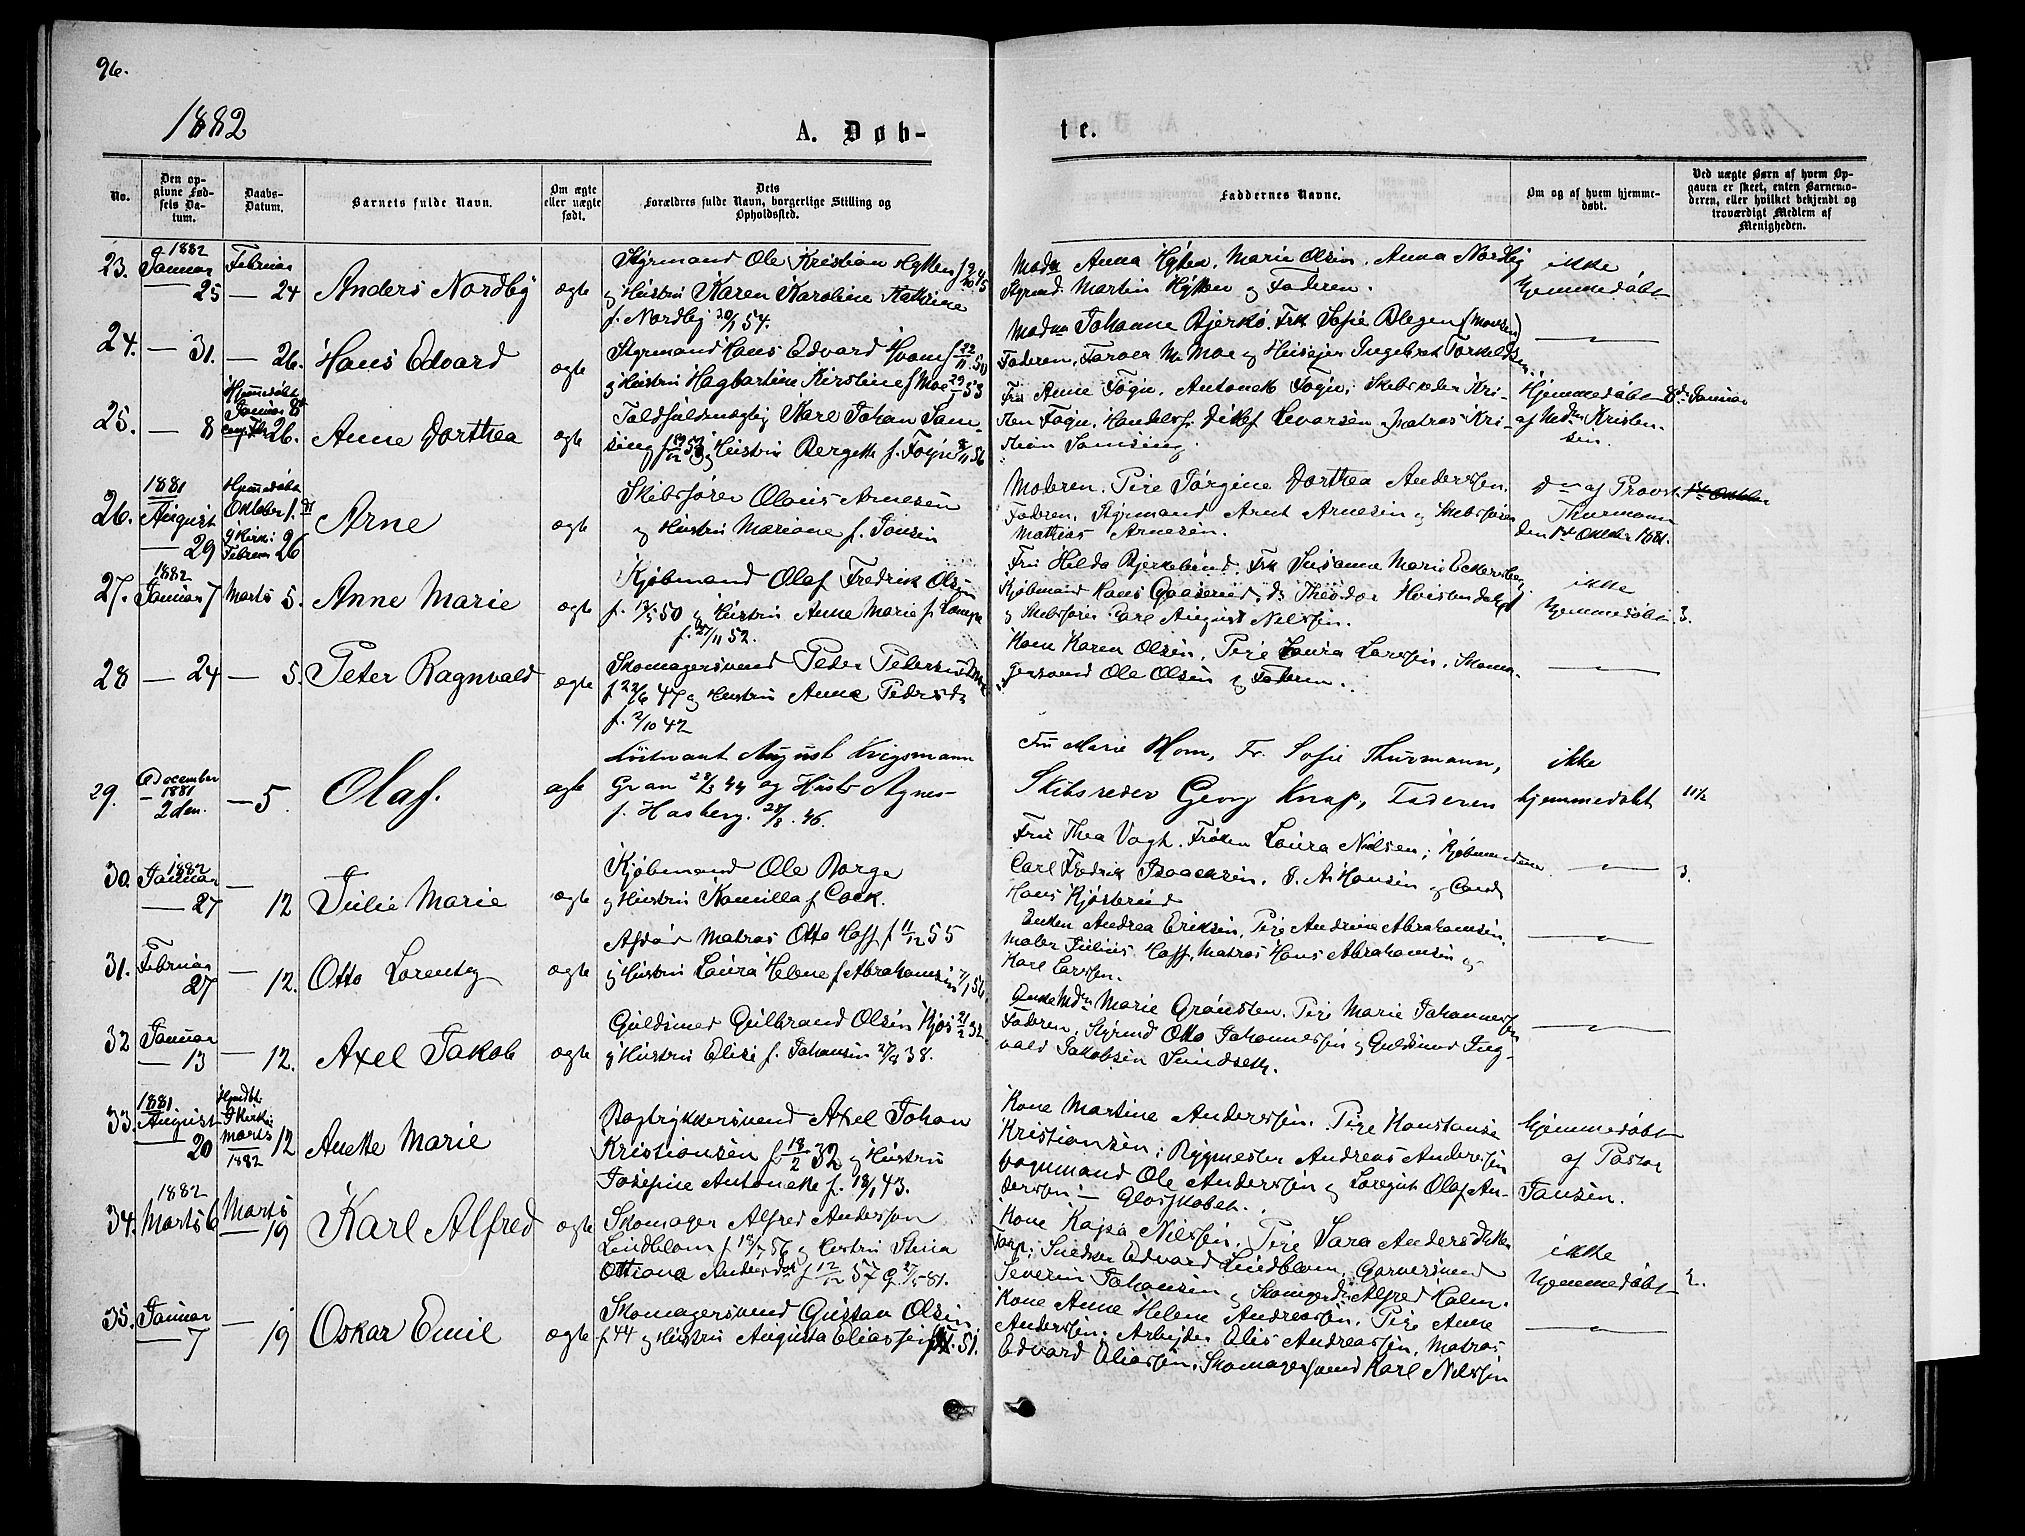 96.
1882
A. Døb-
te.
No.
Den op-
givne Fød-
sels Da-
tum.
Daabs-
Datum.
Barnets fulde Navn.
Om ægte
eller uægte
født.
Dets
Forældres fulde Navn, borgerlige Stilling og
Opholdssted.
Faddernes Navne.
Om og af hvem hjemme-
døbt.
Ved uægte Børn af hvem Op-
gaven er skeet, enten Barnemo-
deren, eller hvilket bekjendt og
troværdigt Medlem af
Menigheden.
23. 1882 Januar 25
Februar 24
Anders Nordby
ægte
Styrmand Ole Kristian Hytten
og Hustru Karen Karoline Kathrine
f. Nordby 54.
Madm Anna Hytten, Marie Olsen, Anna Nordby
Styrmd. Martin Hytten og Faderen.
ikke
hjemmedøbt
24. — 31.
— 26.
Hans Edvard
ægte
Styrmand Hans Edvard
og Hustru Hagbartine Kirstine f. Moe 53
Madm Johanne Bjerkø, Frk Sofie Blegen
Faderen, Farver M. Moe og Huseier Ingebret
25. — 8
Hjemmedøbt
Januar 8de
26.
Anne Dorthea
ægte
Toldfuldmægtig Karl Johan Sam-
sing og Hustru Bergette f. Føyn 8/11 56
Fru Anne Føyn, Antonette Føyn, Skibsreder Kri-
sten Føyn, Handelsf. Ditlef Sevarsen og Matros Kri-
stian Samsing.
Hjemmedøbt 8de Januar
af Madm Kristen-
sen.
26. 1881 August 29
Hjemmedøbt
Oktober 1.
i Kirke
Februar 26
Arne
ægte
Skibsfører Olaus Arnesen
og Hustru Mariane f. Jansen
Moderen, Pige Jørgine Dorthea Anderssen,
Faderen, Styrmand Arnt Arnesen og Skibsfører
Mathias Arnesen.
do af Provst
Thurmann
den 1ste Oktober 1881.
27. 1882 Januar 7
Marts 5.
Anne Marie
ægte
Kjøbmand Olaf Fredrik Olsen
f. 50 og Hustru Anne Marie f.
f. 27/11 52.
Fru Hilda Bjerkebund, Frk Susanne Marie
Kjøbmand Hans Gaaserud, do Theodor
og Skibsfører Carl August Nilssen.
ikke
hjemmedøbt
3.
28 — 24
— 5.
Peter Ragnvald
ægte
Skomagersvend Peder Pedersen
f. 22/6 47 og Hustru Anne Pedersdr
f. 2/10 42
Kone Karen Olsen, Pige Laura Larssen, Skoma-
gersvend Ole Olsen og Faderen.
29. December 1881 2den.
— 5.
Olaf.
ægte
Løitnant August Krigsmann
Gran 28/3 44 og Hustr Agnes
f. Hasberg. 28/8. 46.
Fru Marie Hom, Fr. Sofie Thurmann,
Skibsreder Georg Knap, Faderen
ikke
hjemmedøbt
11½
30 1882 Januar 27
— 12
Julie Marie
ægte
Kjøbmand Ole Borge
og Hustru Kamilla f. Cock.
Fru Thea Vogh, Frøken Laura Nielsen, Kjøbmændene
Carl Fredrik Isaacksen, A. Hansen og Cand.
Hans Kjøsterud
3.
31. Februar 27
— 12.
Otto Lorentz
ægte
Afdød Matros Otto Hoff f. 11/12 55
og Hustru Laura Helene f. Abrahamsen
Enken Andrea Eriksen, Pige Andrine Abrahamsen,
Maler Julius Hoff, Matros Hans Abrahamsen og
Karl Larssen.
32 Januar 13
— 12.
Axel Jakob
ægte
Guldsmed Gulbrand Olsen Kjos 21/2 32
og Hustru Elise f. Johansen 27/4 38.
Enke Mdm Marie Grønsten, Pige Marie Johannessen
Faderen, Styrmd Otto Johannessen og Guldsmed Ing-
vald Jakobsen Sundseth.
33. 1881 August 20
Hjemdbt.
i Kirke
Marts 12
1882
Anette Marie
ægte
Bogtrykkersvend Axel Johan
Kristiansen f. 18/2 32 og Hustru
Josefine Antonette f. 18/1 43.
Kone Martine Anderssen, Pige Konstanse
Kristiansen, Bygmester Andreas Anderssen
Vognmand Ole Anderssen og Olaf An-
derssen —
hjemmedøbt
af Pastor
Jansen.
34. 1882 Marts 6
Marts 19
Karl Alfred
ægte
Skomager Alfred Anderssen
Lindblom f. 18/7 56 og Hustru Stina
Ottiana Andersdr f. 12/12 57 G. 27/5 81.
Kone Kajsa Nilssen, Pige Sara Andersdtter
Torp, Snedker Edvard Lindblom, Garversvend
Severin Johansen og Skomagersd Alfred Holm.
ikke
hjemmedøbt
35. Januar 7
— 19
Oskar Emil
ægte
Skomagersvend Gustav Olsen
f. 44 og Hustru Augusta Eliassen 51.
Kone Anne Helene Andreassen, Pige Anne
Anderssen, Arbejder Elis Andreassen, Matros
Edvard Eliassen, Skomagersvend Karl Nilssen